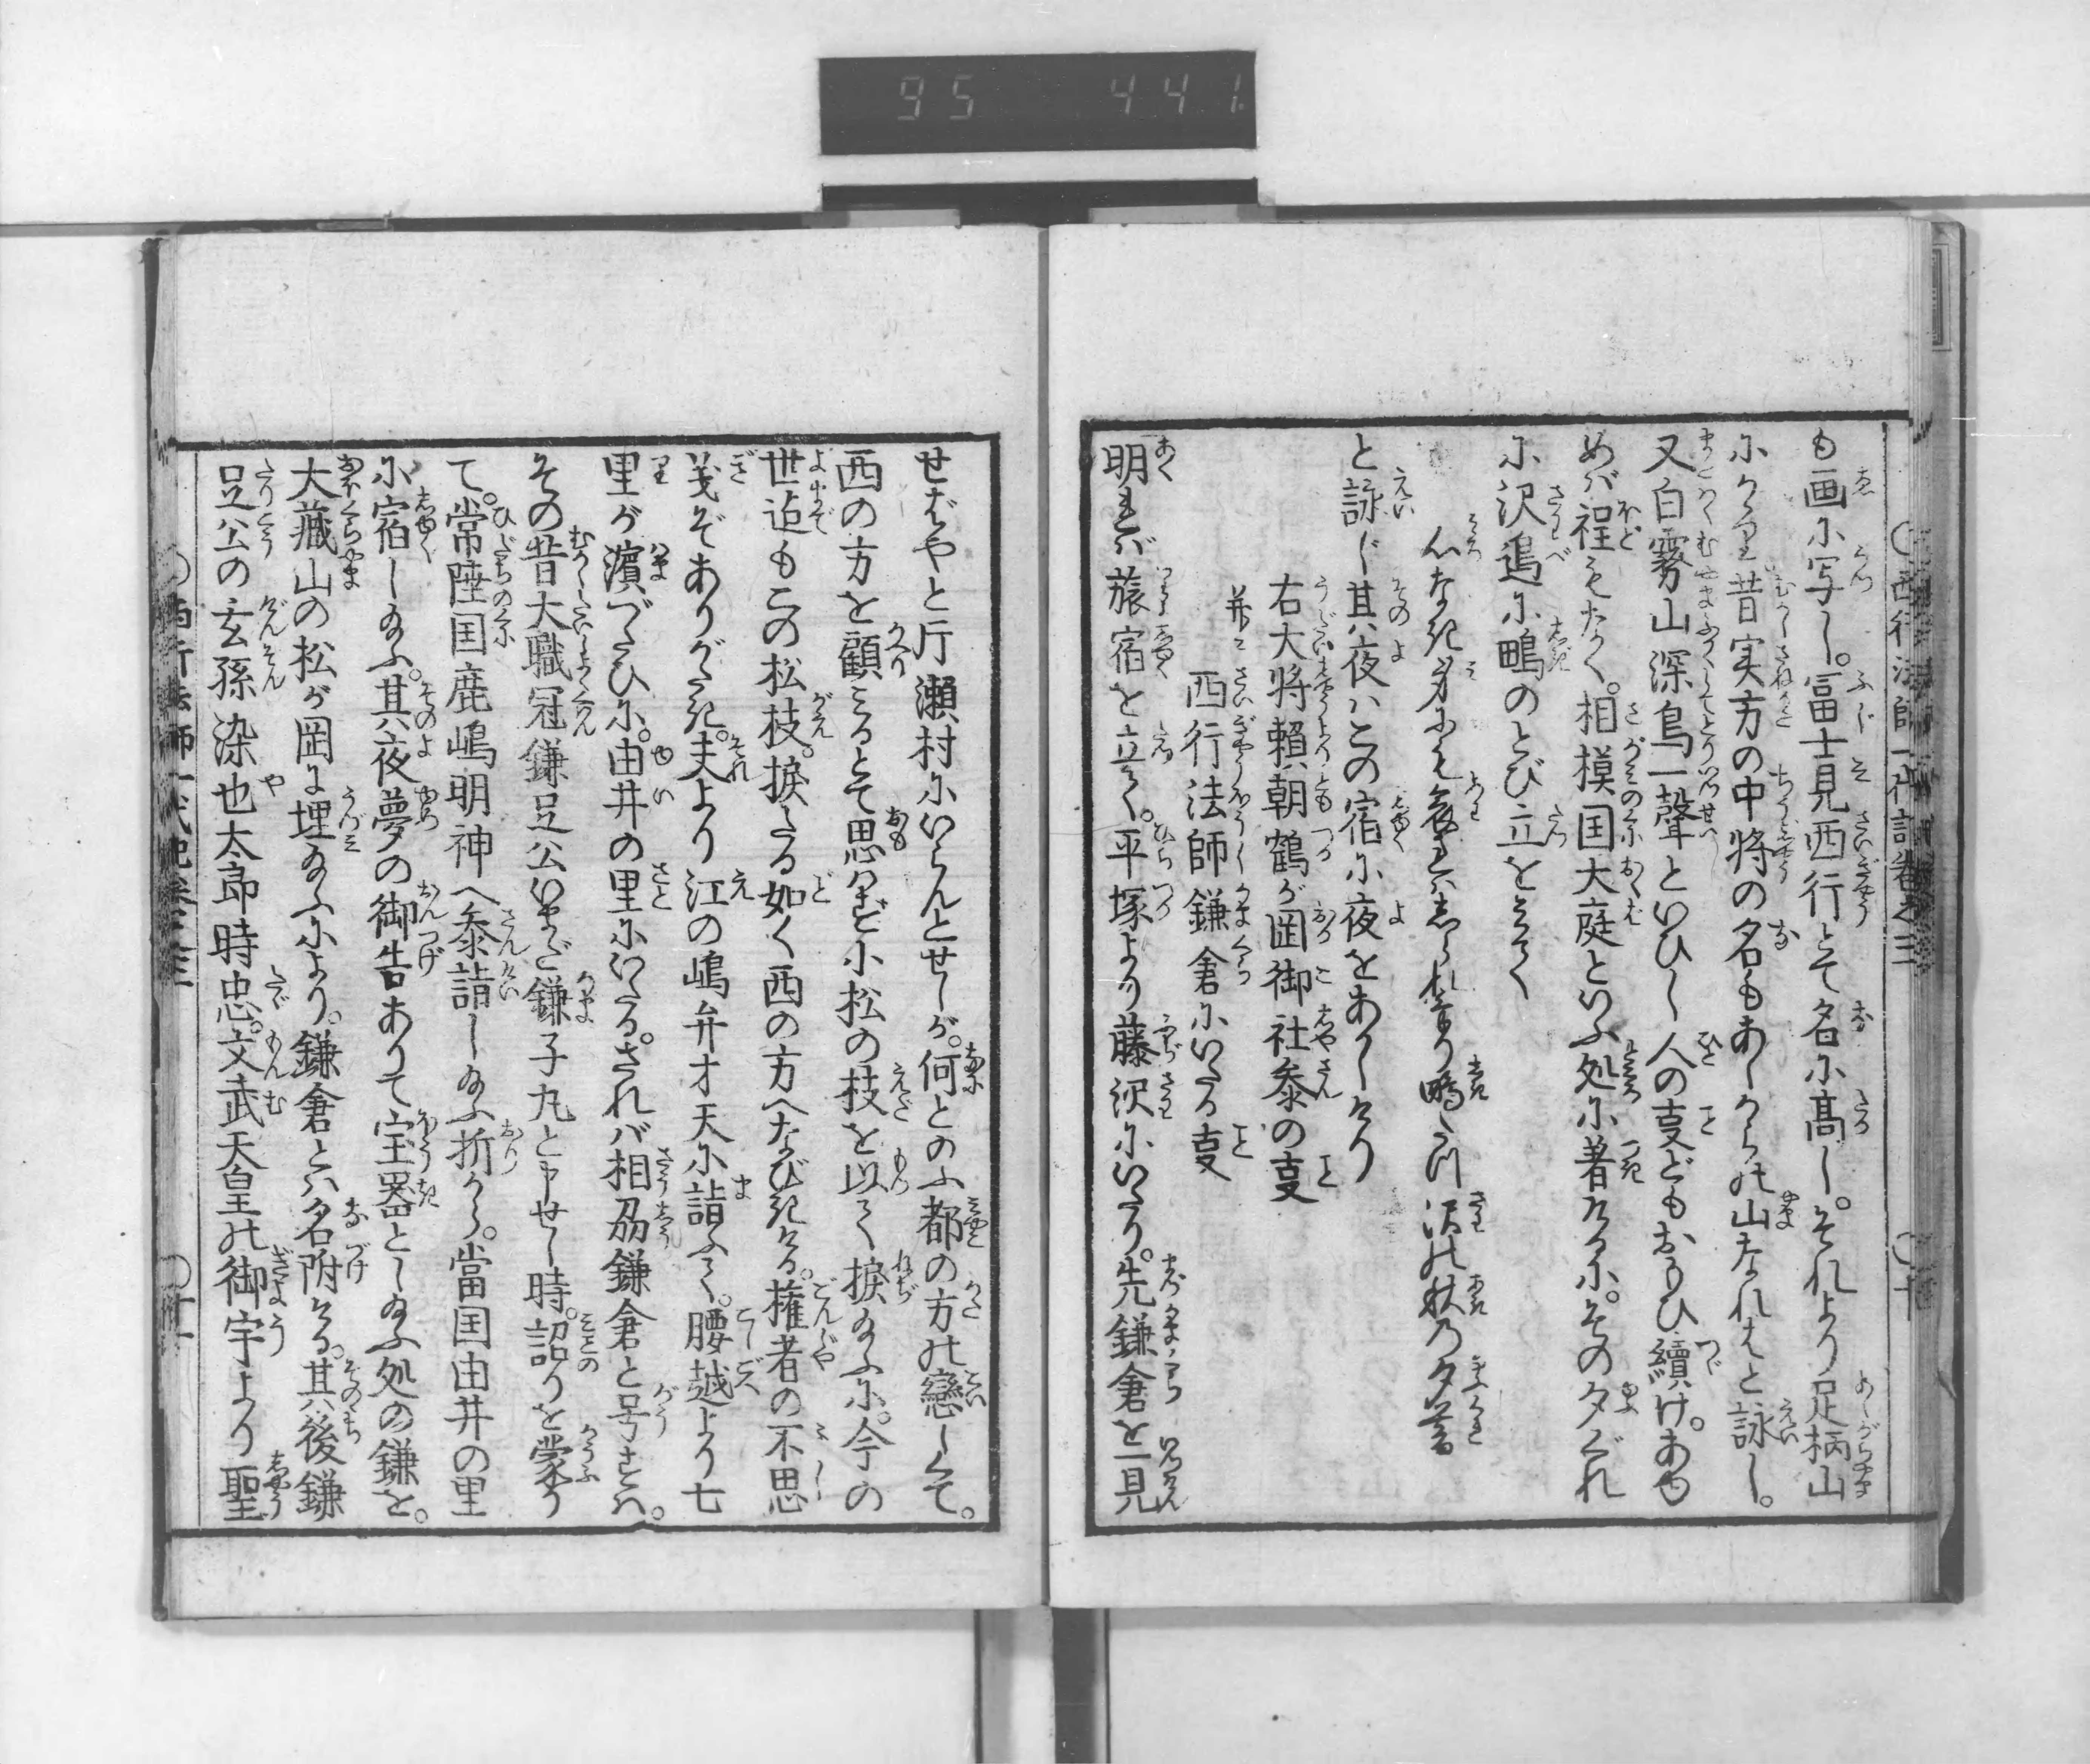 95 441
西行法師一代記巻之三 十
も画に写し。冨士見西行とて名に高し。それより足柄山
にかゝり昔実方の中将の名もあしからの山なれはと詠し。
又白霧山深鳥一聲といひし人の叓どもおもひ續け。あゆ
めば程もちかく。相模国大庭といふ処に著けるに。その夕ぐれ
に沢邉に鴫のとび立をきゝて
心なき身にも哀はしられけり鴫たつ沢の秋の夕暮
と詠じ其夜ハこの宿に夜をあかしけり
右大将頼朝鶴が岡御社参の叓
并ニ
西行法師鎌倉にいたる叓
明れバ旅宿を立て。平塚より藤沢にいたり。先鎌倉を一見
せばやと片瀬村にいらんとせしが。何とのふ都の方の戀しくて。
西の方を顧みるとて思はず小松の枝を以て捩給ふに。今の
世迠もこの松枝。捩たる如く西の方へなびきける。権者の不思
義ぞありがたき。夫より江の嶋弁才天に詣ふて。腰越より七
里が濵づたひに。由井の里にいたる。されバ相刕鎌倉と号すハ。
その昔大職冠鎌足公いまだ鎌子丸と申せし時。詔りを蒙り
て。常陸国鹿嶋明神へ参詣し給ふ折から。當国由井の里
に宿し給ふ。其夜夢の御告ありて宝器とし給ふ処の鎌を。
大蔵山の松が岡に埋給ふにより。鎌倉とハ名附ける。其後鎌
足公の玄孫染也太郎時忠。文武天皇の御宇より聖
西行法師一代記巻之三 十一